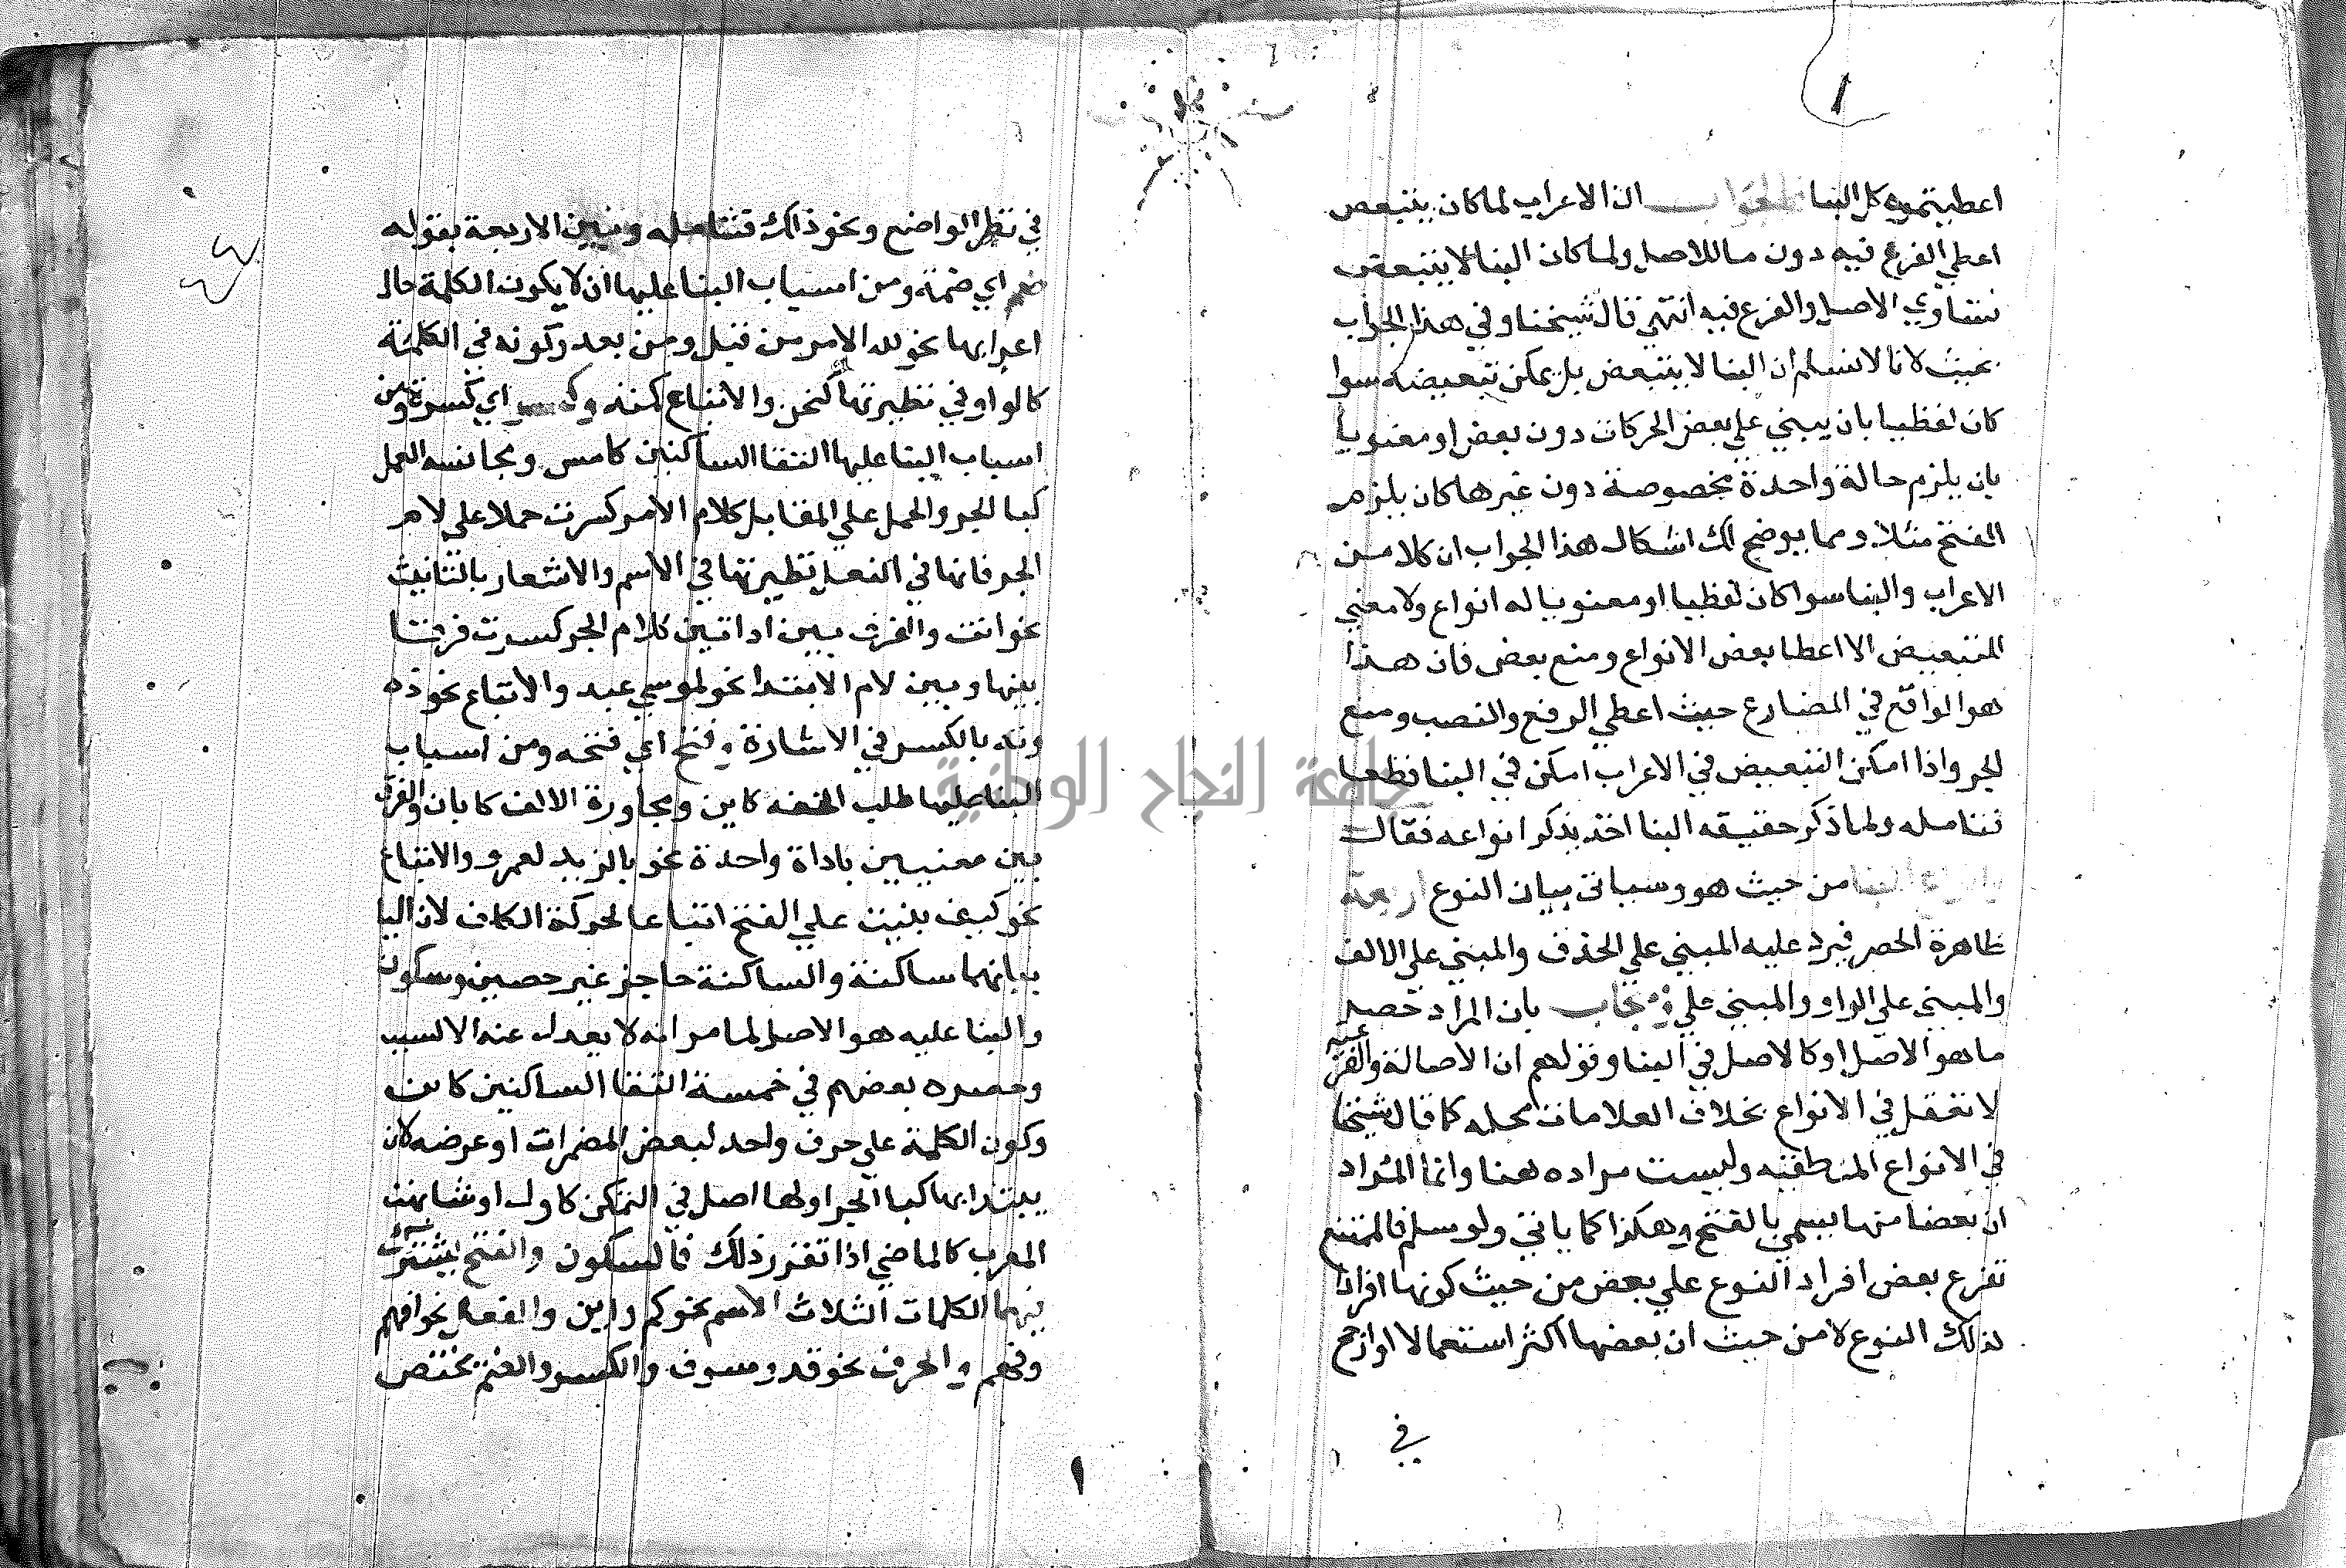 ١
اعطيتموه كل البنا فالجواب ان الاعراب لما كان يتبعض
اعطي الفرع فيه دون ما للاصل ولما كان البنا لا يتبعض
تساوي الاصل والفرع فيه انتهي قال شيخنا وفي هذا الجواب
بحيث لانا لا نسلم ان البنا لا يتبعض بل يمكن تبعيضه سوا
كان لفظيا بان يبني علي بعض الحركات دون بعض او معنويا
بان يلزم حالة واحدة مخصوصة دون غيرها كان يلزم
الفتح مثلا ومما يوضح لك اشكال هذا الجواب ان كلا من
الاعراب والبنا سوا كان لفظيا او معنويا له انواع ولا معني
للتبعيض الا اعطا بعض الانواع ومنع بعض فان هذا
هو الواقع في المضارع حيث اعطي الرفع والنصب ومنع
الجر واذا امكن التبعيض في الاعراب امكن في البنا قطعا
فتامله ولما ذكر حقيقه البنا اخذ يذكر انواعه فقال
وانواع البنا من حيث هو وسياتي بيان النوع اربعة
ظاهرة الحصر فيرد عليه المبني علي الحذف والمبني علي الالف
والمبني علي الواو والمبني علي ويجاب بان المراد حصر
ما هو الاصل او كالاصل في البنا وقولهم ان الاصالة والفرعية
لا تعقل في الانواع بخلاف العلامات محله كما قال شيخنا
في الانواع المنطقيه وليست مراده هنا وانما المراد
ان بعضا منها يسمي بالفتح وهكذا كما ياتي ولو سلم فالممتنع
تفرع بعض افراد النوع علي بعض من حيث كونها افرادا
لذلك النوع لا من حيث ان بعضها اكثر استعمالا او ارجح
في
في نظر الواضع ونحو ذلك فتامله وتبين الاربعة بقوله
ضم اي ضمة ومن اسباب البنا عليها ان لا يكون الكلمة حال
اعرابها نحو لله الامر من قبل ومن بعد وكونه في الكلمة
كالواو في نظيرتها كنحن والاتباع كمنذ وكسر اي كسرة ومن
اسباب البنا عليها التقا الساكنين كامس ومجانسه العمل
كبا الجر والحمل علي المقابل كلام الامر كسرت حملا علي لام
الجر فانها في الفعل نظيرتها في الاسم والاشعار بالتانيث
نحو انت والفرق بين اداتين كلام الجر كسرت فرقا
بينها وبين لام الابتدا نحو لموسي عبد والاتباع نحو ذه
وته بالكسر في الاشارة وفتح اي فتحه ومن اسباب
البنا عليها طلب الخفه كاين ومجاورة الالف كايان والفرق
بين معنيين باداة واحدة نحو يالزيد لعمرو والاتباع
نحو كيف بنيت علي الفتح اتباعا لحركة الكاف لان اليا
بينهما ساكنة والساكنة حاجز غير حصين وسكون
والبنا عليه هو الاصل لما مر انه لا يعدل عنه الا لسبب
وحصره بعضهم في خمسة التقا الساكنين كاين
وكون الكلمة علي حرف واحد لبعض المضمرات او عرضه لان
يبتدا بها كبا الجر او لها اصل في التمكن كاول او شابهت
المعرب كالماضي اذا تقرر ذلك فالسكون والفتح يشترك
فيهما الكلمات الثلاث الاسم نحو كم واين والفعل نحو افهم
وفهم والحرف نحو قد وسوف والكسر والضم يختص
١
جامعة النجاح الوطنية